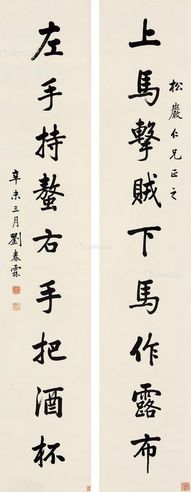 松巖仁兄正之
上馬擊賊下馬作露布
左手持螯右手把酒杯
辛未三月劉春霖